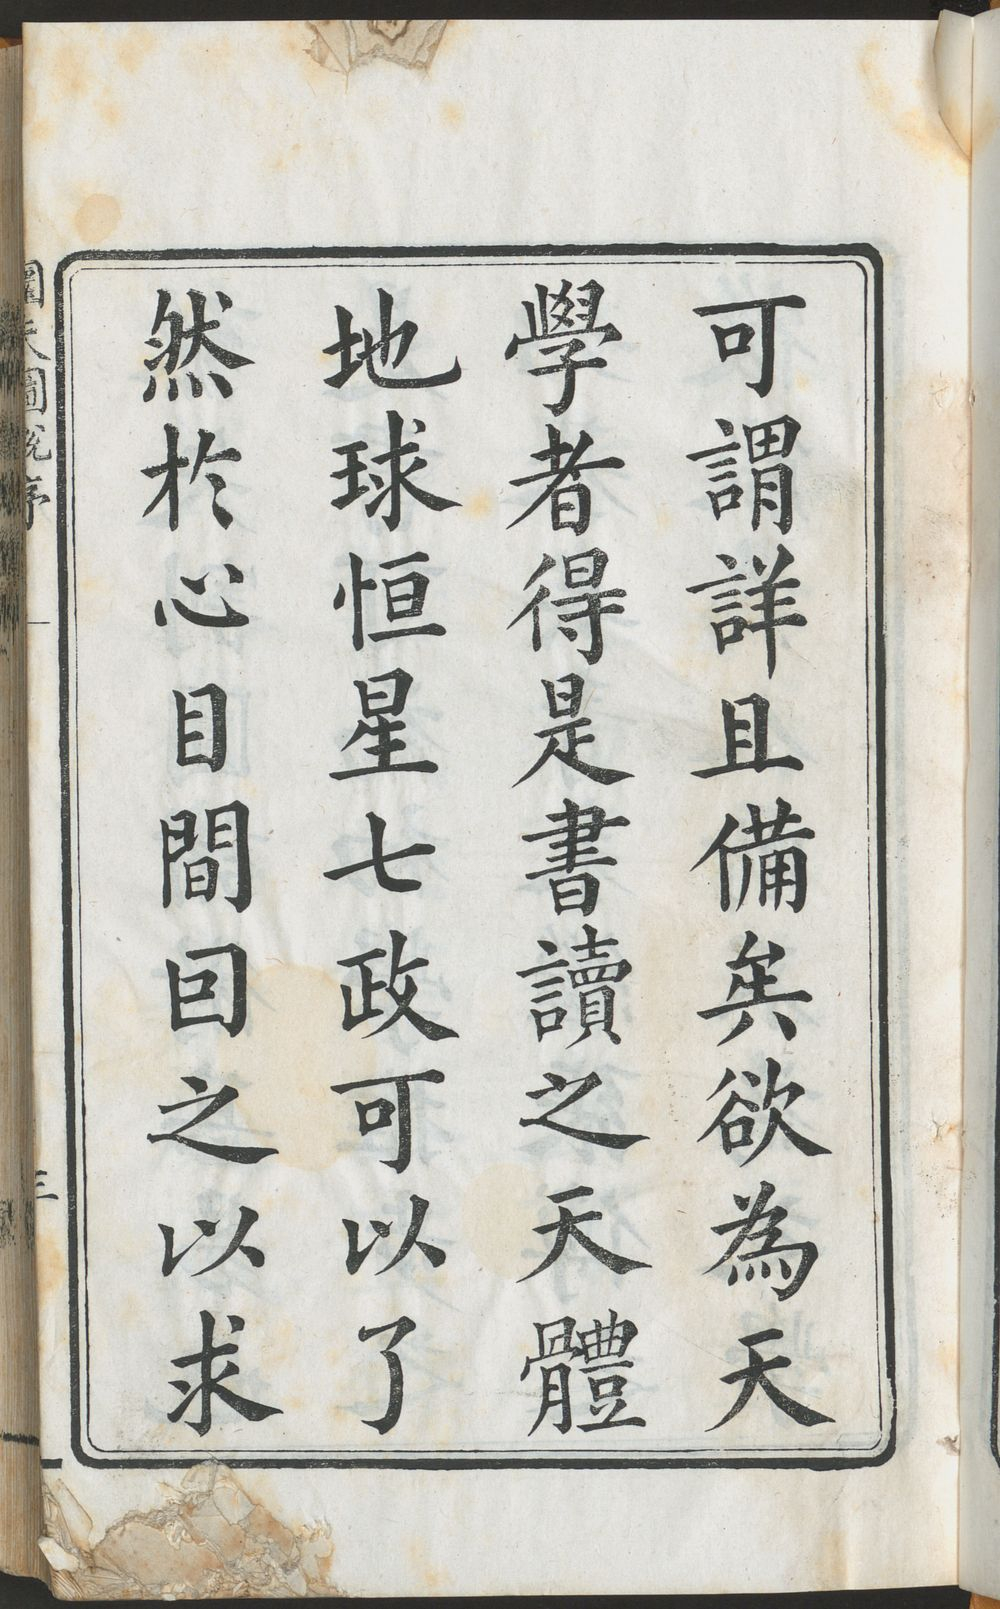 可謂詳且備矣欲為天
學者得是書讀之天體
地球恒星七政可以了
然於心目間因之以求
圜天圖說序
三